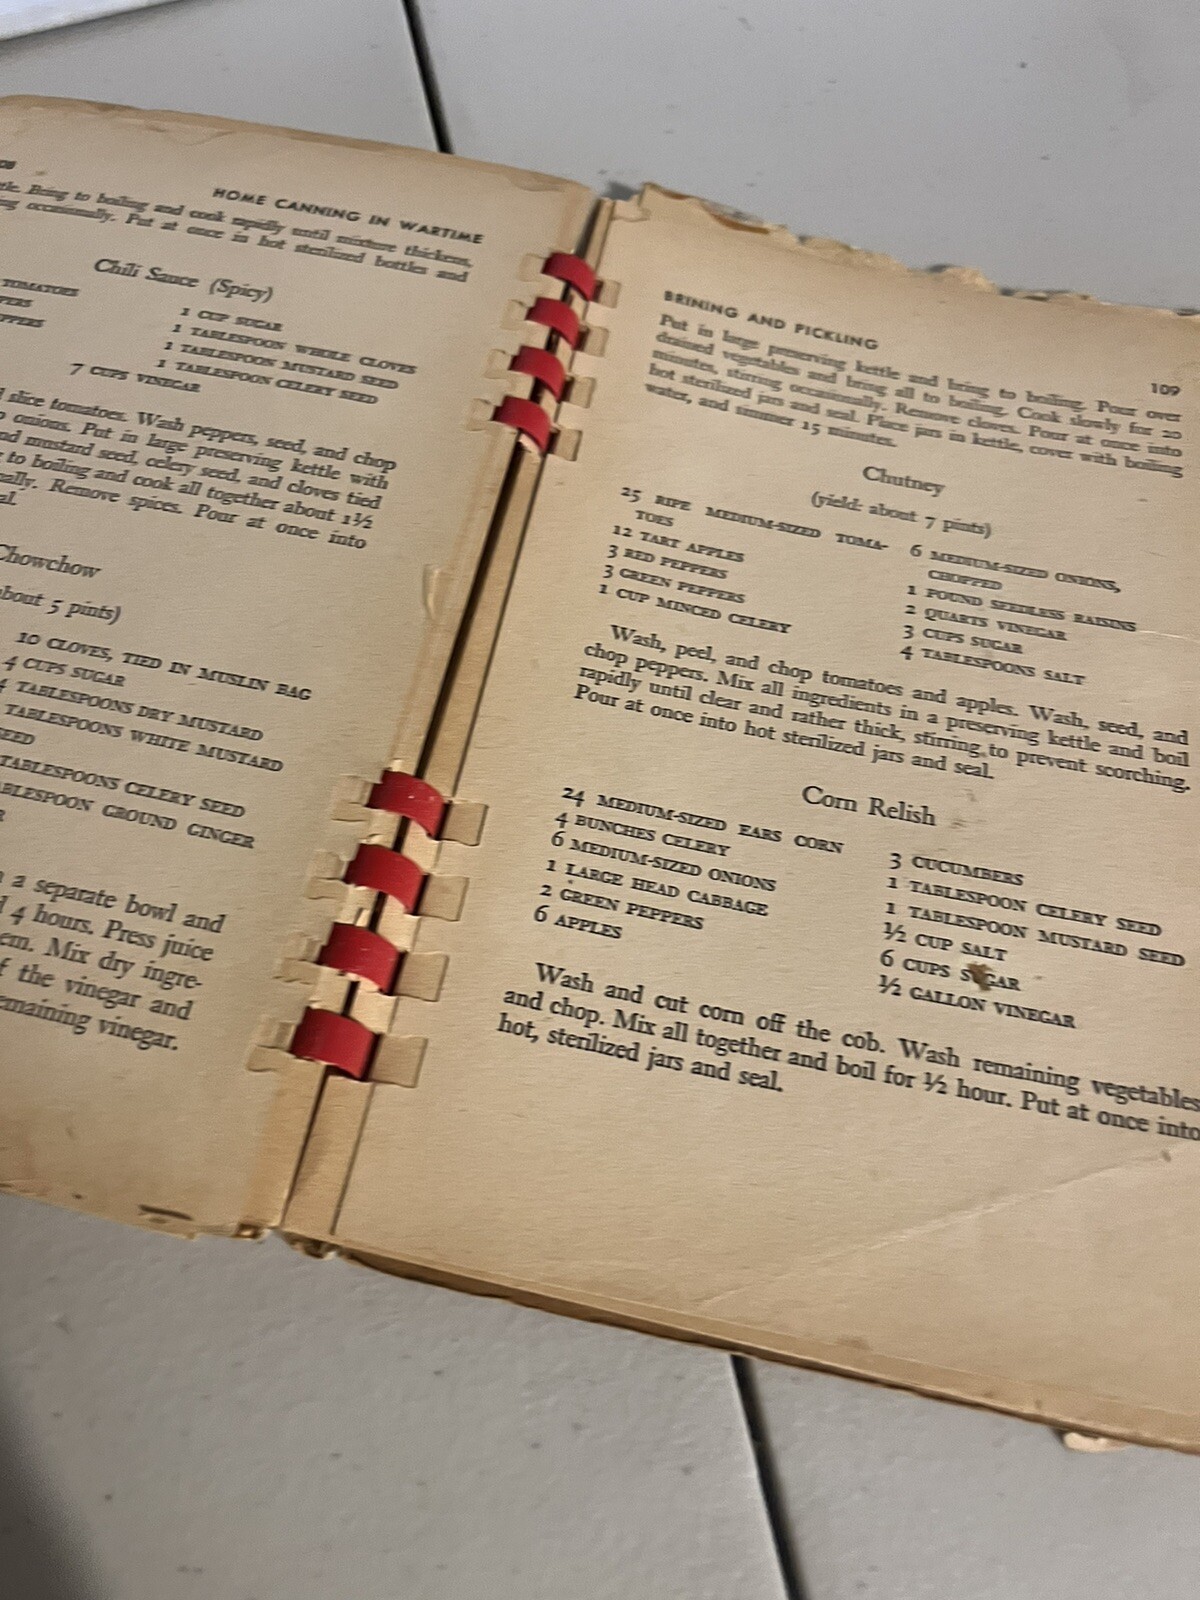 HOME CANNING IN WARTIME
Bring to boiling and cook rapidly until mixture thickens,
occasionally. Put at once in hot sterilized bottles and
Chili Sauce (Spicy)
TOMATOES
1 CUP SUGAR
1 TABLESPOON WHOLE CLOVES
1 TABLESPOON MUSTARD SEED
1 TABLESPOON CELERY SEED
7 CUPS VINEGAR
slice tomatoes. Wash peppers, seed, and chop
onions. Put in large preserving kettle with
mustard seed, celery seed, and cloves tied
to boiling and cook all together about 1½
Remove spices. Pour at once into
Chowchow
5 pints)
10 CLOVES, TIED IN MUSLIN BAG
4 CUPS SUGAR
4 TABLESPOONS DRY MUSTARD
TABLESPOONS WHITE MUSTARD
SEED
TABLESPOONS CELERY SEED
GROUND GINGER
a separate bowl and
4 hours. Press juice
Mix dry ingre-
the vinegar and
remaining vinegar.
BRINING AND PICKLING
109
Put in large preserving kettle and bring to boiling. Pour over
drained vegetables and bring all to boiling. Cook slowly for 20
minutes, stirring occasionally. Remove cloves. Pour at once into
hot sterilized jars and seal. Place jars in kettle, cover with boiling
water, and simmer 15 minutes.
Chutney
(yield: about 7 pints)
25 RIPE MEDIUM-SIZED TOMA-
TOES
12 TART APPLES
3 RED PEPPERS
3 GREEN PEPPERS
1 CUP MINCED CELERY
6 MEDIUM-SIZED ONIONS,
CHOPPED
1 POUND SEEDLESS RAISINS
2 QUARTS VINEGAR
3 CUPS SUGAR
4 TABLESPOONS SALT
Wash, peel, and chop tomatoes and apples. Wash, seed, and
chop peppers. Mix all ingredients in a preserving kettle and boil
rapidly until clear and rather thick, stirring to prevent scorching.
Pour at once into hot sterilized jars and seal.
Corn Relish
24 MEDIUM-SIZED EARS CORN
4 BUNCHES CELERY
6 MEDIUM-SIZED ONIONS
1 LARGE HEAD CABBAGE
2 GREEN PEPPERS
6 APPLES
3 CUCUMBERS
1 TABLESPOON CELERY SEED
1 TABLESPOON MUSTARD SEED
½ CUP SALT
6 CUPS SUGAR
½ GALLON VINEGAR
Wash and cut corn off the cob. Wash remaining vegetables
and chop. Mix all together and boil for ½ hour. Put at once into
hot, sterilized jars and seal.